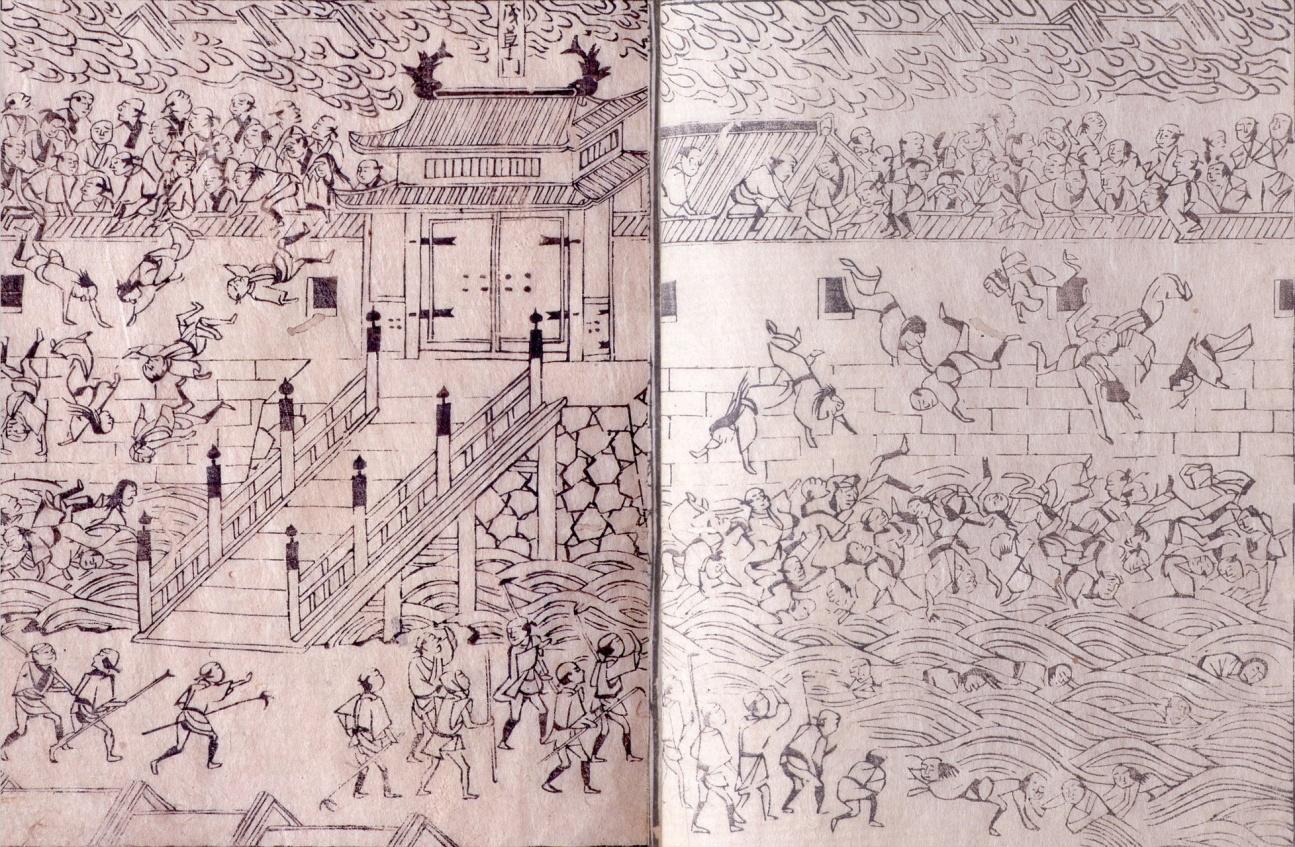 浅草門